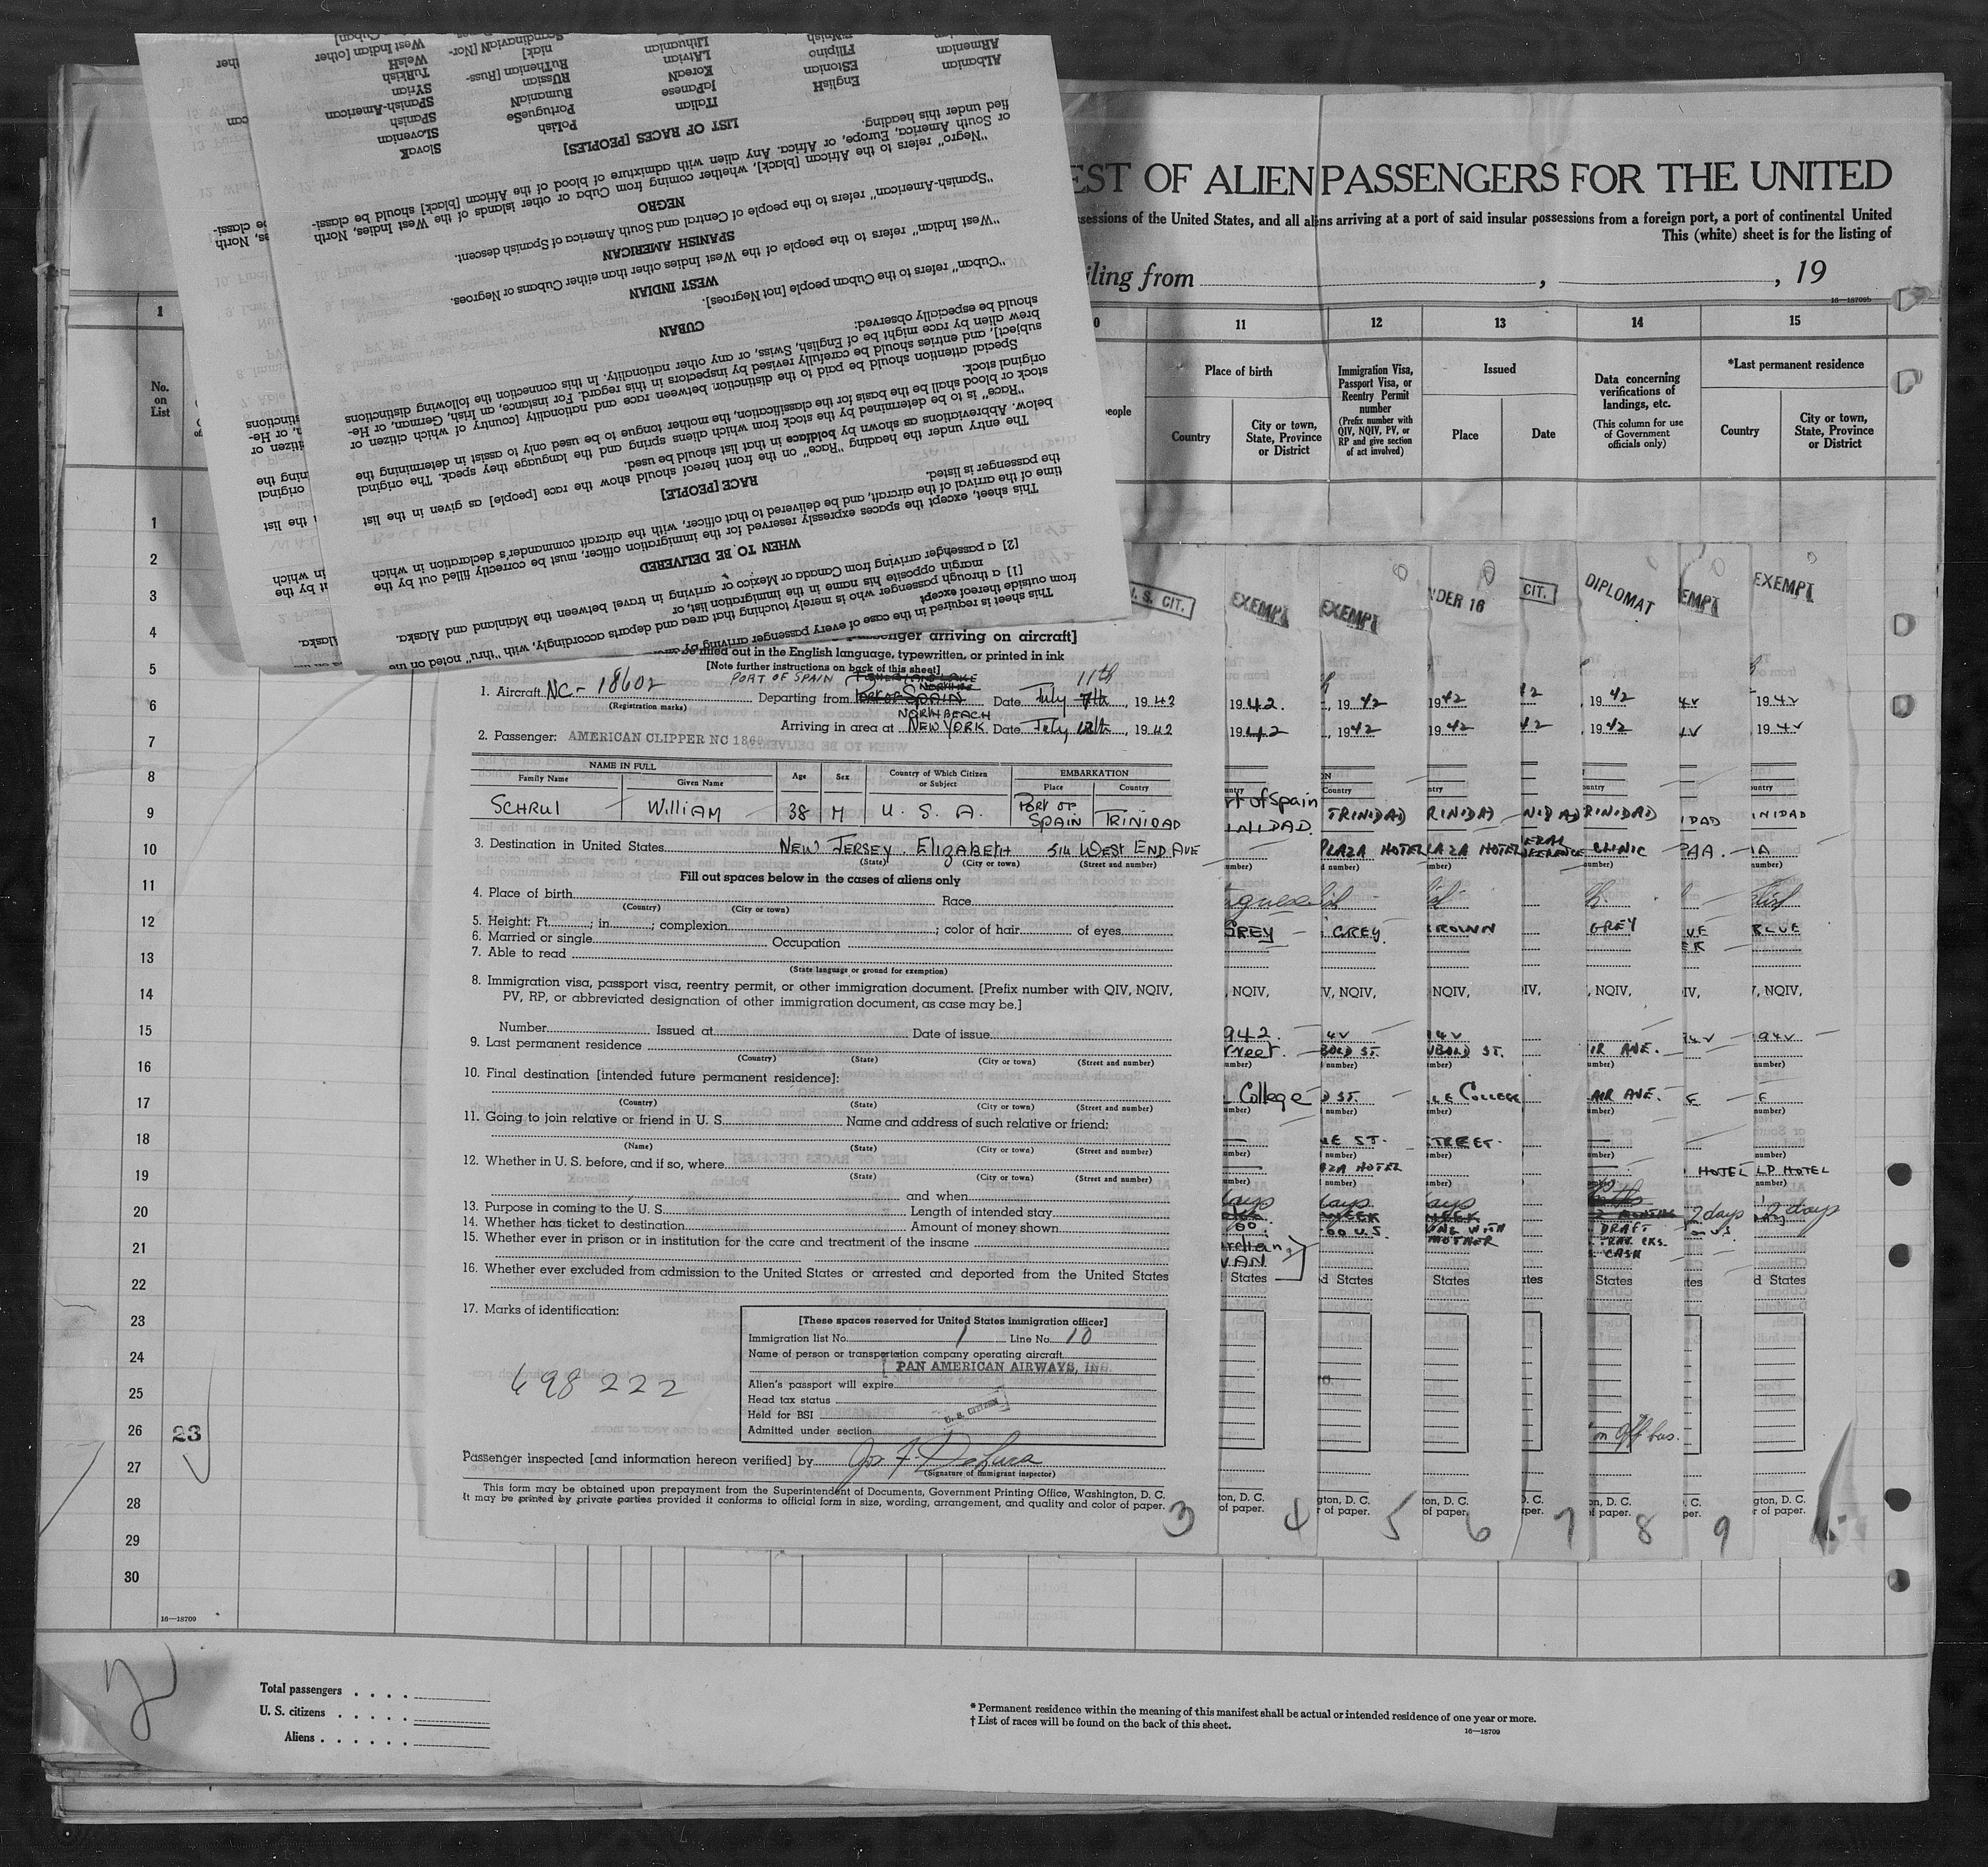 EST OF ALIEN PASSENGERS FOR THE UNITED
sessions of the United States, and all aliens arriving at a port of said insular possessions from a foreign port, a port of continental United
This (white) sheet is for the listing of
iling from , , 19
16—18709b
1 0 11 12 13 14 15
No. on List
eople
Place of birth
Country
City or town, State, Province or District
Immigration Visa, Passport Visa, or Reentry Permit number
(Prefix number with QIV, NQIV, PV, or RP and give section of act involved)
Issued
Place
Date
Data concerning verifications of landings, etc.
(This column for use of Government officials only)
*Last permanent residence
Country
City or town, State, Province or District
This sheet is required in the case of every passenger arriving by
from outside thereof except
[1] a through passenger who is merely touching that area and departs accordingly, with "thru" noted on the
margin opposite his name in the immigration list, or
[2] a passenger arriving from Canada or Mexico or arriving in travel between the Mainland and Alaska.
WHEN TO BE DELIVERED
This sheet, except the spaces expressly reserved for the immigration officer, must be correctly filled out by the
time of the arrival of the aircraft, and be delivered to that officer, with the aircraft commander's declaration in which
the passenger is listed.
RACE [PEOPLE]
The entry under the heading "Race" on the front hereof should show the race [people] as given in the list
below. Abbreviations as shown by boldface in that list should be used.
"Race" is to be determined by the stock from which aliens spring and the language they speak. The original
stock or blood shall be the basis for the classification, the mother tongue to be used only to assist in determining the
original stock.
Special attention should be paid to the distinction between race and nationality [country of which citizen or
subject], and entries should be carefully revised by inspectors in this regard. For instance, an Irish, German, or He-
brew alien by race might be of English, Swiss, or any other nationality. In this connection the following distinctions
should be especially observed:
CUBAN
"Cuban" refers to the Cuban people [not Negroes].
WEST INDIAN
"West Indian" refers to the people of the West Indies other than either Cubans or Negroes.
SPANISH AMERICAN
"Spanish-American" refers to the people of Central and South America of Spanish descent.
NEGRO
"Negro" refers to the African [black], whether coming from Cuba or other islands of the West Indies, North
or South America, Europe, or Africa. Any alien with admixture of blood of the African [black] should be classi-
fied under this heading.
LIST OF RACES [PEOPLES]
ALbanian EnglisH ITalian PoLish SlovaK
ARmenian EStonian JaPanese PortugueSe SLOvenian
FIlipino KoreaN RumaniaN SPanish
FiNnish LAtvian RUssian SPanish-American
LIthuanian RuThenian [Russ- SYrian
niak] TuRkish
Scandinavian [Nor- WelsH
West Indian [other
Cuban]
enger arriving on aircraft]
filled out in the English language, typewritten, or printed in ink
[Note further instructions on back of this sheet]
1. Aircraft NC-18602 Departing from PORT OF SPAIN Date July 11th, 1942
(Registration marks)
Arriving in area at NORTH BEACH NEW YORK Date July 12th, 1942
2. Passenger: AMERICAN CLIPPER NC 1860
NAME IN FULL
Family Name
Given Name
Age
Sex
Country of Which Citizen or Subject
EMBARKATION
Place
Country
SCHRUI WilliAM 38 M U. S. A. PORT OF SPAIN TRINIDAD
3. Destination in United States NEW JERSEY. ElizABETH 514 WEST END AVE
(State) (City or town) (Street and number)
Fill out spaces below in the cases of aliens only
4. Place of birth Race
(Country) (City or town)
5. Height: Ft. ; in. ; complexion ; color of hair of eyes
6. Married or single Occupation
7. Able to read
(State language or ground for exemption)
8. Immigration visa, passport visa, reentry permit, or other immigration document. [Prefix number with QIV, NQIV,
PV, RP, or abbreviated designation of other immigration document, as case may be.]
Number Issued at Date of issue
9. Last permanent residence
(Country) (State) (City or town) (Street and number)
10. Final destination [intended future permanent residence]:
(Country) (State) (City or town) (Street and number)
11. Going to join relative or friend in U. S. Name and address of such relative or friend:
(Name) (State) (City or town) (Street and number)
12. Whether in U. S. before, and if so, where
(State) (City or town) (Street and number)
and when
13. Purpose in coming to the U. S. Length of intended stay
14. Whether has ticket to destination Amount of money shown
15. Whether ever in prison or in institution for the care and treatment of the insane
16. Whether ever excluded from admission to the United States or arrested and deported from the United States
17. Marks of identification:
698222
[These spaces reserved for United States immigration officer]
Immigration list No. 1 Line No. 10
Name of person or transportation company operating aircraft
PAN AMERICAN AIRWAYS, INC.
Alien's passport will expire
Head tax status
Held for BSI
U. S. CITIZEN
Admitted under section
Passenger inspected [and information hereon verified] by
(Signature of immigrant inspector)
This form may be obtained upon prepayment from the Superintendent of Documents, Government Printing Office, Washington, D. C.
It may be printed by private parties provided it conforms to official form in size, wording, arrangement, and quality and color of paper.
3 4 5 6 7 8 9
U. S. CIT. EXEMPT EXEMPT NDER 16 CIT. DIPLOMAT EMPT EXEMPT
1942. , 1942 1942 42 , 1942 42 1942
1942 , 1942 1942 42 1942 1942
rt of Spain
INIDAD. TRINIDAD RINIDAD NIDAD RINIDAD IDAD INIDAD
PLAZA HOTEL LAZA HOTEL CLINIC PAA. IA
GREY GREY. ROWN GREY UE BLUE
, NQIV, V, NQIV, NQIV, IV, , NQIV, IV, V, NQIV,
942. 4v 4v 4v 94v
treet. BOLD ST. UBOLD ST. IR AVE.
College D ST. LE COLLEGE AIR AVE. E E
NE ST. STREET.
AZA HOTEL HOTEL LD HOTEL
days days days 2 days 2 days
WEEK WEEK
00 00 U.S. ING WITH MOTHER DRAFT
TRAV. CKS.
CASH
States d States States ates States tes d States
on Off bus.
ton, D. C. gton, D. C. ton, D. C. . C. on, D. C. . C. gton, D. C.
of paper. r of paper. of paper. per. of paper. per. r of paper.
1
2
3
4
5
6
7
8
9
10
11
12
13
14
15
16
17
18
19
20
21
22
23
24
25
26 23
27
28
29
30
16—18709
2
Total passengers . . . .
U. S. citizens . . . . .
Aliens . . . . . .
* Permanent residence within the meaning of this manifest shall be actual or intended residence of one year or more.
† List of races will be found on the back of this sheet.
16—18709